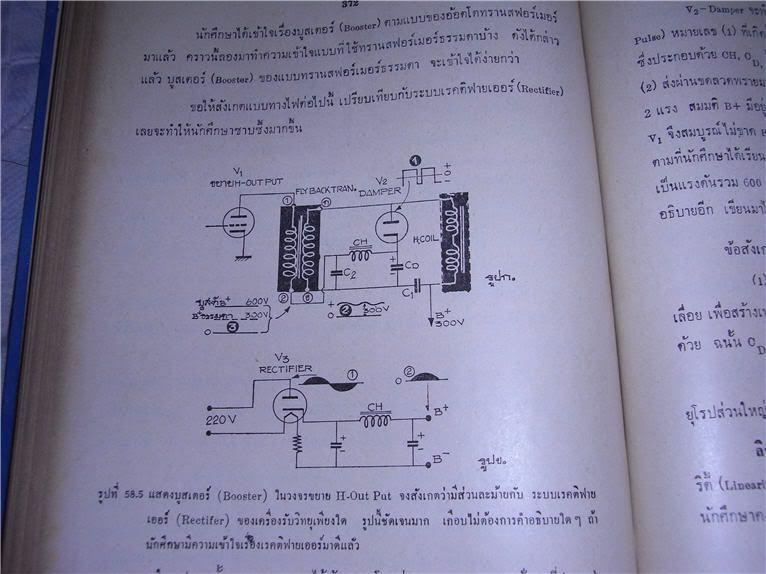 372
นักศึกษาได้เข้าใจเรื่องบูสเตอร์ (Booster) ตามแบบของอ้อตโตทรานสฟอร์เมอร์
มาแล้ว คราวนี้ลองมาทำความเข้าใจแบบที่ใช้ทรานสฟอร์เมอร์ธรรมดาบ้าง ดังได้กล่าว
แล้ว บูสเตอร์ (Booster) ของแบบทรานสฟอร์เมอร์ธรรมดา จะเข้าใจได้ง่ายกว่า
ขอให้สังเกตแบบทางไฟต่อไปนี้ เปรียบเทียบกับระบบเรคติฟายเออร์ (Rectifier)
เลยจะทำให้นักศึกษาซาบซึ้งมากขึ้น
V1
ขยายH-OUTPUT
FLYBACK TRAN.
V2
DAMPER
1
+
0
-
1
CH
H.COIL
C2
CD
C1
รูปก.
2
บูสต์B+ 600V
B+ธรรมดา 300V
0 3
+
0
2
300V
B+
300V
V3
RECTIFIER
1
0
2
220V
CH
B+
B-
รูปข.
รูปที่ 58.5 แสดงบูสเตอร์ (Booster) ในวงจรขยาย H-Out Put จงสังเกตว่ามีส่วนละม้ายกับ ระบบเรคติฟาย
เออร์ (Rectifer) ของเครื่องรับวิทยุเพียงใด รูปนี้ชัดเจนมาก เกือบไม่ต้องการคำอธิบายใด ๆ ถ้า
นักศึกษามีความเข้าใจเรื่องเรคติฟายเออร์มาดีแล้ว
V2-Damper จะทำ
Pulse) หมายเลข (1) ที่เกิด
ซึ่งประกอบด้วย CH, CD,
(2) ส่งผ่านขดลวดทรายม
2 แรง สมมติ B+ มีอยู่
V1 จึงสมบูรณ์ไม่ขาด
ตามที่นักศึกษาได้เรียน
เป็นแรงดันรวม 600
อธิบายอีก เขียนมาใ
ข้อสังเก
(1)
เลื่อย เพื่อสร้างเ
ด้วย ฉนั้น CD
ยุโรปส่วนใหญ่
ลิ
ริตี้ (Linear
นักศึกษาค